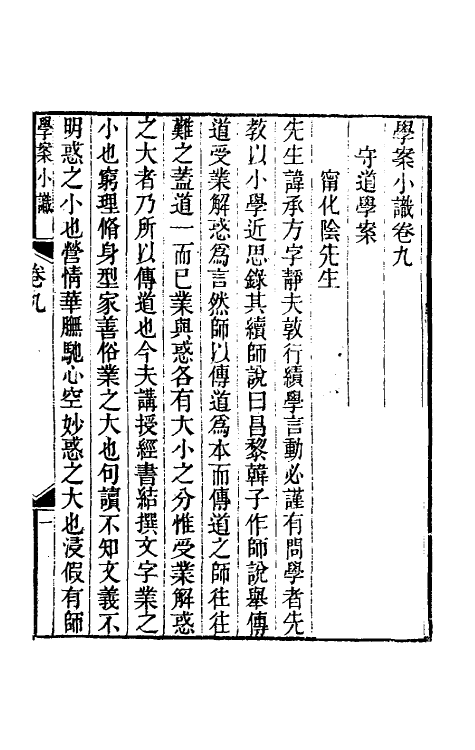 學案小識卷九
守道學案
甯化陰先生
先生諱承方字靜夫敦行績學言動必謹有問學者先
教以小學近思錄其續師說曰昌黎韓子作師說舉傳
道受業解惑爲言然師以傳道爲本而傳道之師往往
難之蓋道一而已業與惑各有大小之分惟受業解惑
之大者乃所以傳道也今夫講授經書結撰文字業之
小也窮理脩身型家善俗業之大也句讀不知文義不
明惑之小也營情華膴馳心空妙惑之大也浸假有師
學案小識
卷九
一